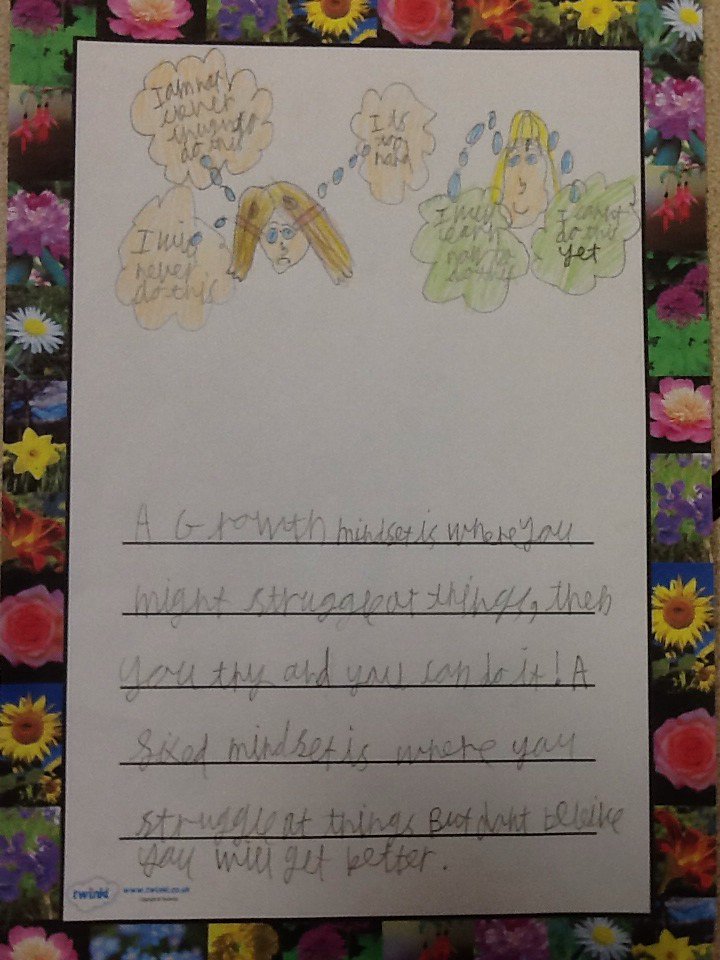 I am not
clever
enough to
do this
I will
never
do this
I is
too
hard
I will
learn
how to
do this
I can't
do this
yet
A Growth mindset is where you
might struggle at things, then
you try and you can do it! A
sixed mindset is where you
struggle at things But don't beleive
you will get better.
twinkl www.twinkl.co.uk